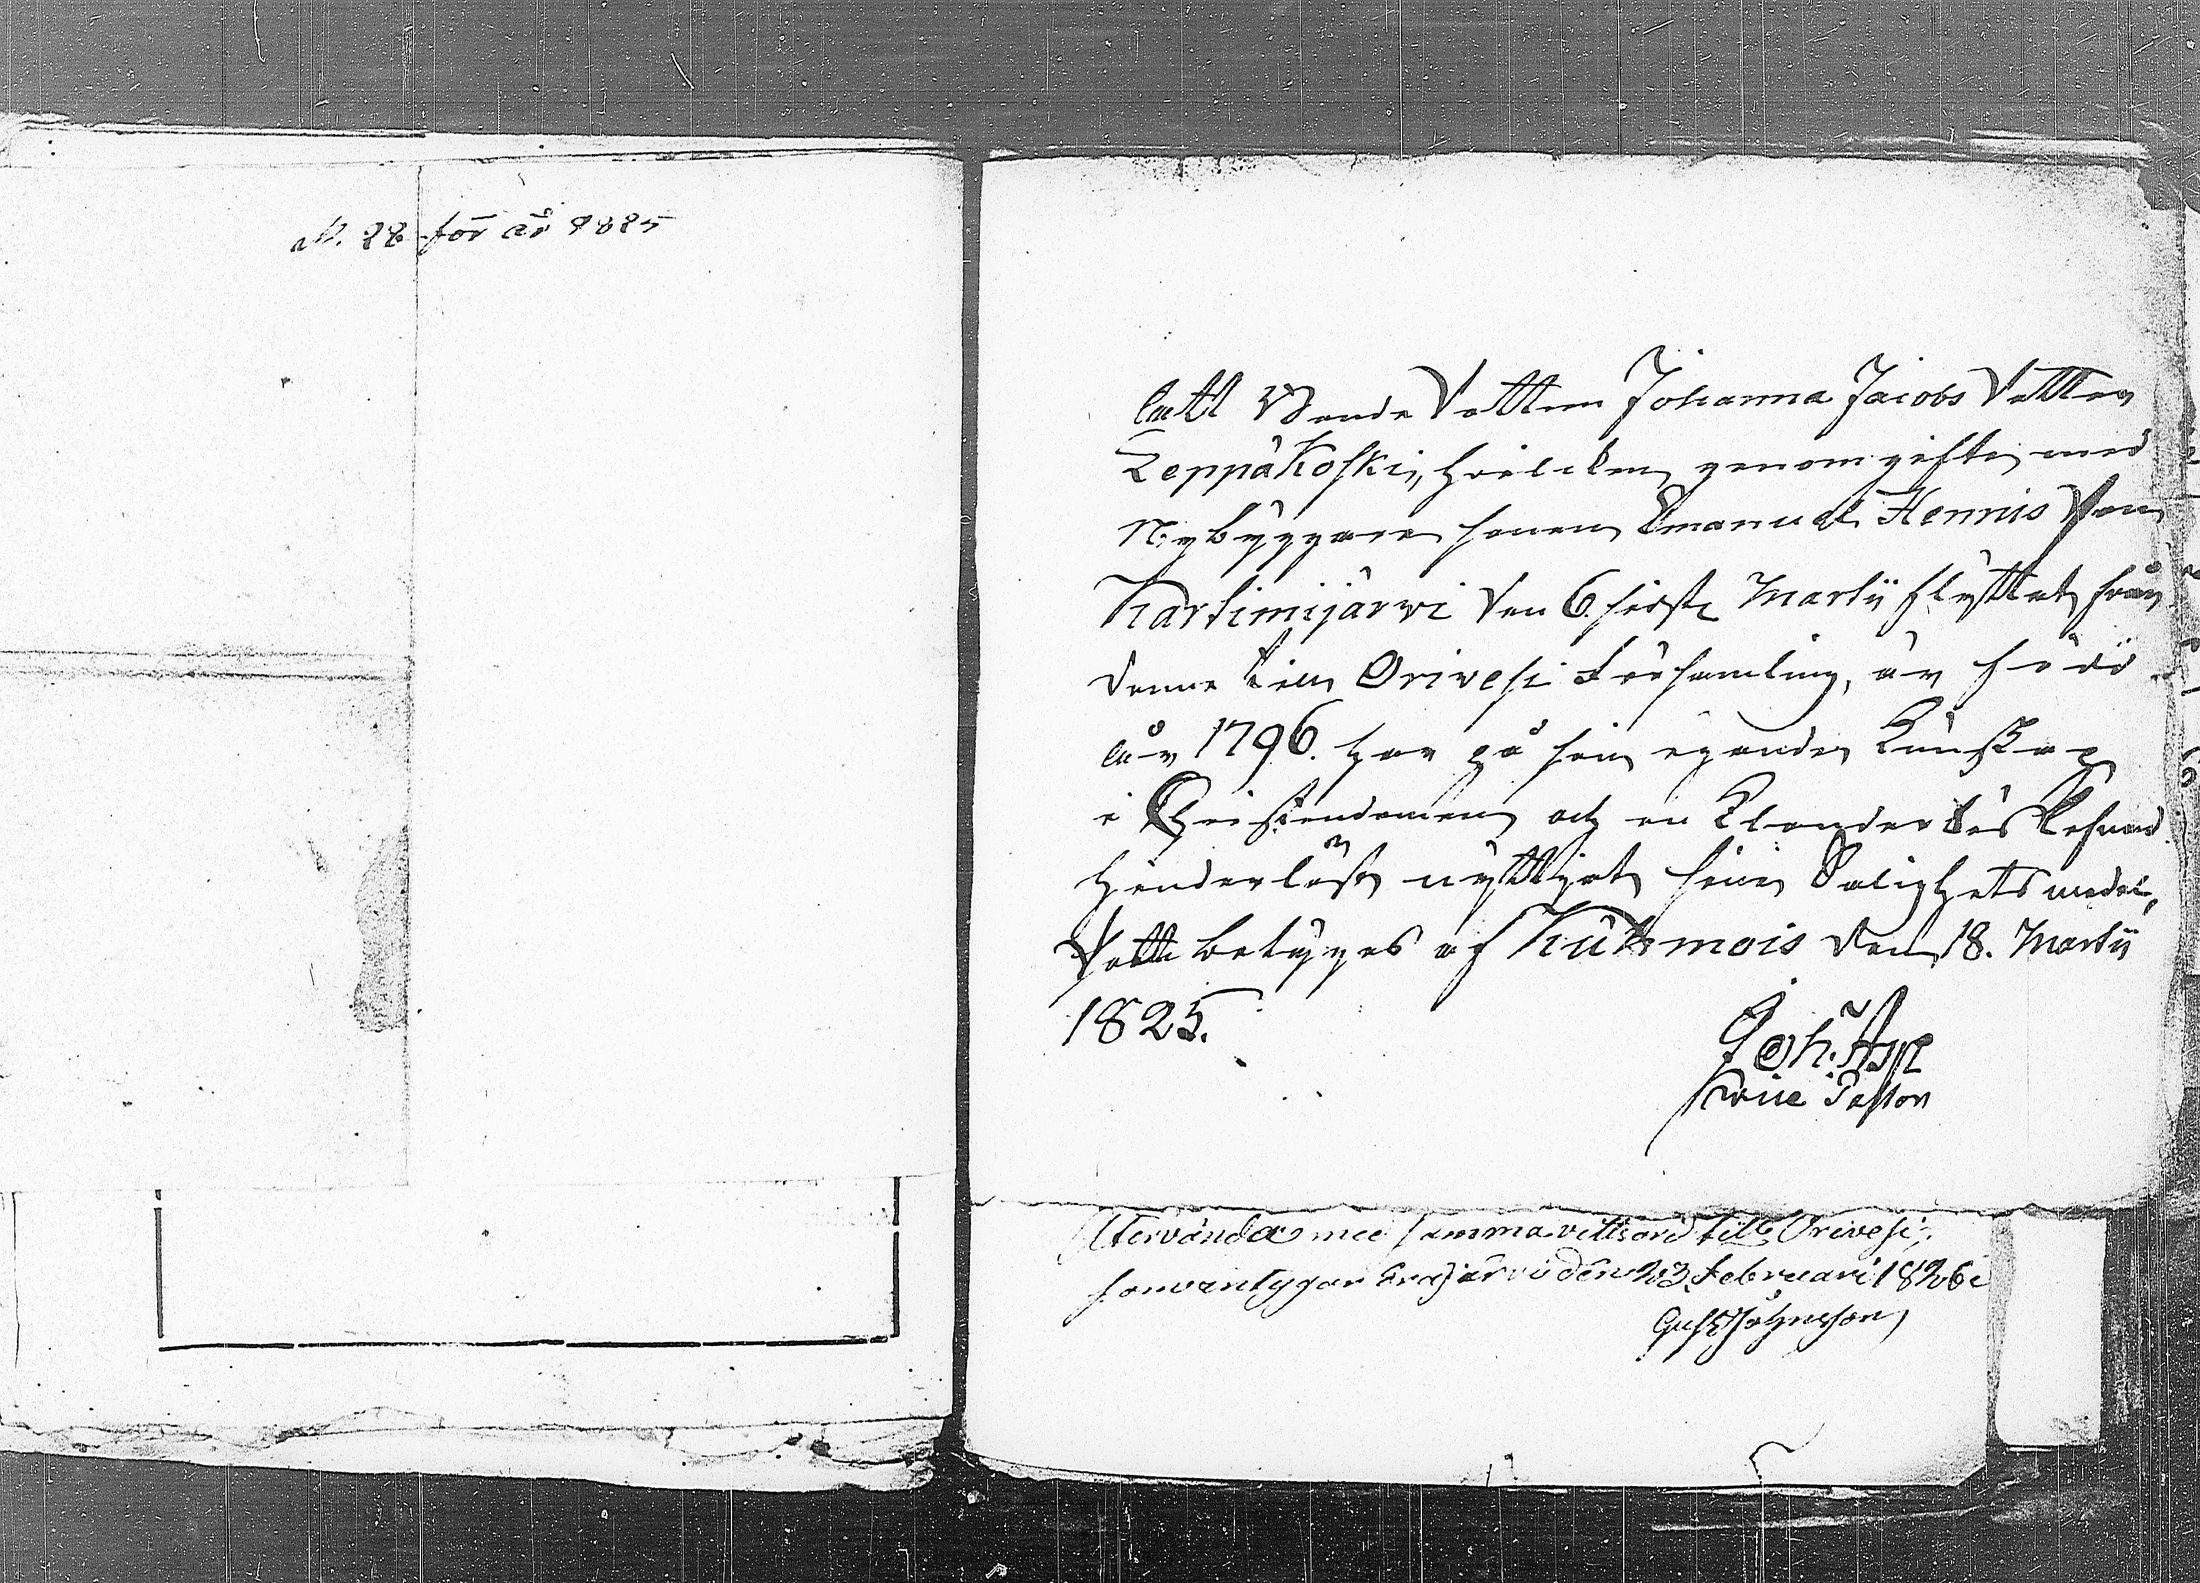 N. 28 för år 1825
Att Bonde Dottren Johanna Jacobs Dotter
Leppäkoski, hvilcken genom gifte med
Nybyggare sonen Emanuel Hennis Son
Karfimijärwi den 6. sistl. Martii flyttat från
denne till Orivesi Församling, är född
år 1796. har på sin egande Kunskap
i Christendomen och en Klanderlös Lefnad
hinderlöst nyttjat sine Salighets medel,
Dett betygas af Kuhmois den 18. Martii
1825.
Joh. Asp
Vice Pastor
Återvänder med samma vittsord till Orivesi,
som intygar Eräjärvi den 23 Februari 1826
Gust Johnsson